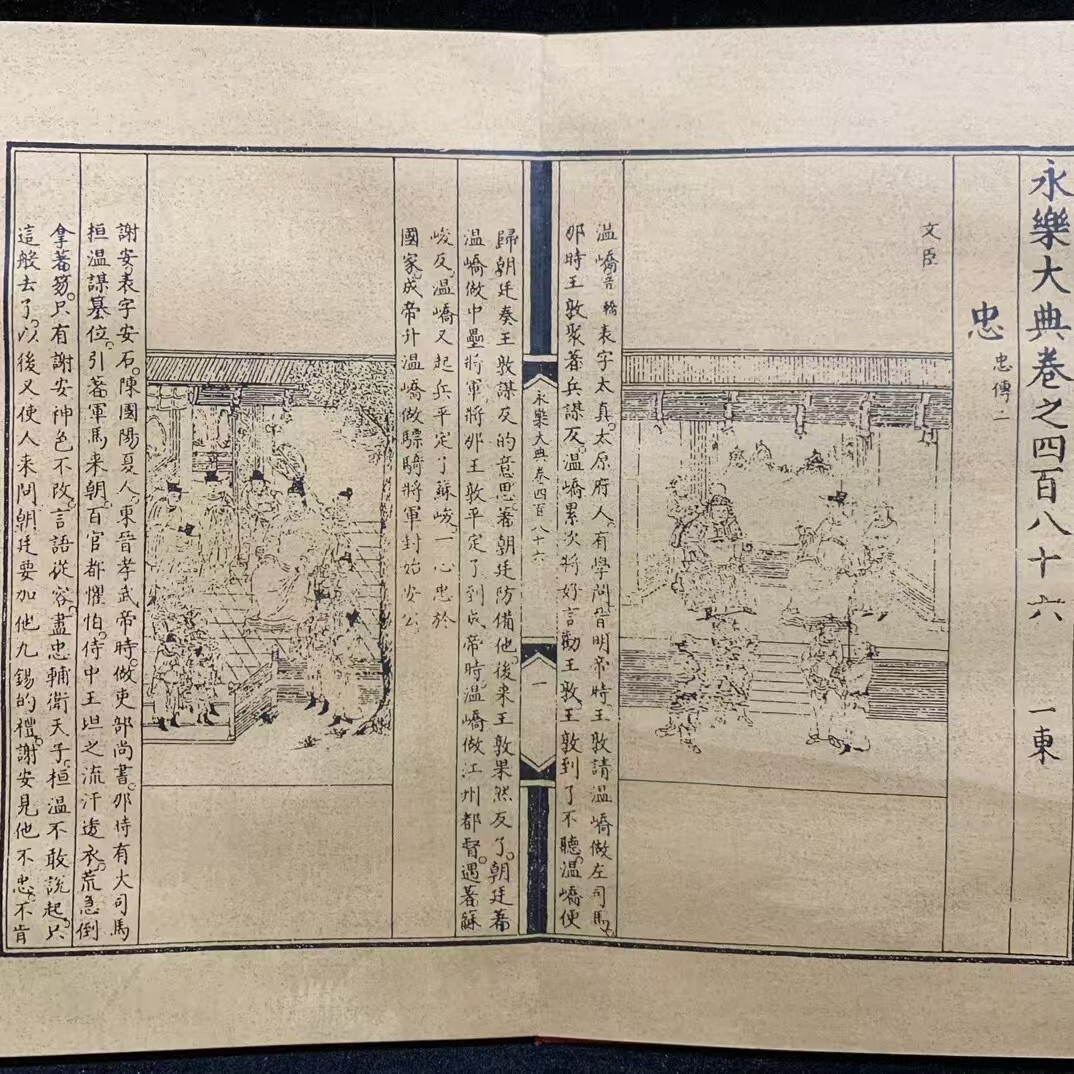 永樂大典卷之四百八十六 一東
忠 忠傳二
文臣
温嶠音轎表字太真太原府人有學問晉明帝時王敦請温嶠做左司馬
那時王敦聚著兵謀反温嶠累次將好言勸王敦王敦到了不聽温嶠便
永樂大典卷四百八十六
一
歸朝廷奏王敦謀反的意思著朝廷防備他後来王敦果然反了朝廷著
温嶠做中壘將軍將那王敦平定了到成帝時温嶠做江州都督遇著蘇
峻反温嶠又起兵平定了蘇峻一心忠於
國家成帝升温嶠做驃騎將軍封始安公
謝安表字安石陳國陽夏人東晉孝武帝時做吏部尚書那時有大司馬
桓温謀墓位引著軍馬来朝百官都懼怕侍中王坦之流汗透衣荒急倒
拿著笏只有謝安神色不改言語從容盡忠輔衛天子桓温不敢說起只
這般去了以後又使人来問朝廷要加他九錫的禮謝安見他不忠不肯